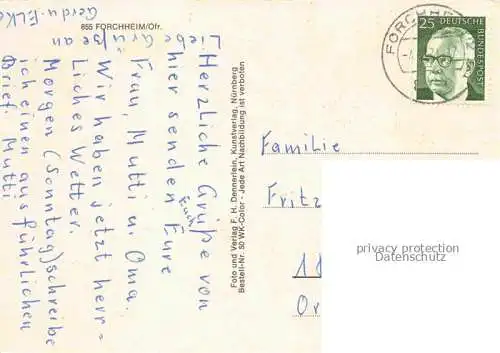 855 FORCHHEIM/Ofr.
Herzliche Grüße von
hier senden Euch Eure
Frau, Mutti u. Oma.
Wir haben jetzt herr-
liches Wetter.
Morgen (Sonntag) schreibe
ich einen ausführlichen
Brief. Mutti
Liebe Grüße an
Gerd u. Elke
Foto und Verlag F. H. Dennerlein, Kunstverlag, Nürnberg
Bestell-Nr. 50 WK-Color - Jede Art Nachbildung ist verboten
FORCHHEIM
25 DEUTSCHE
BUNDESPOST
Familie
Fritz
privacy protection
Datenschutz